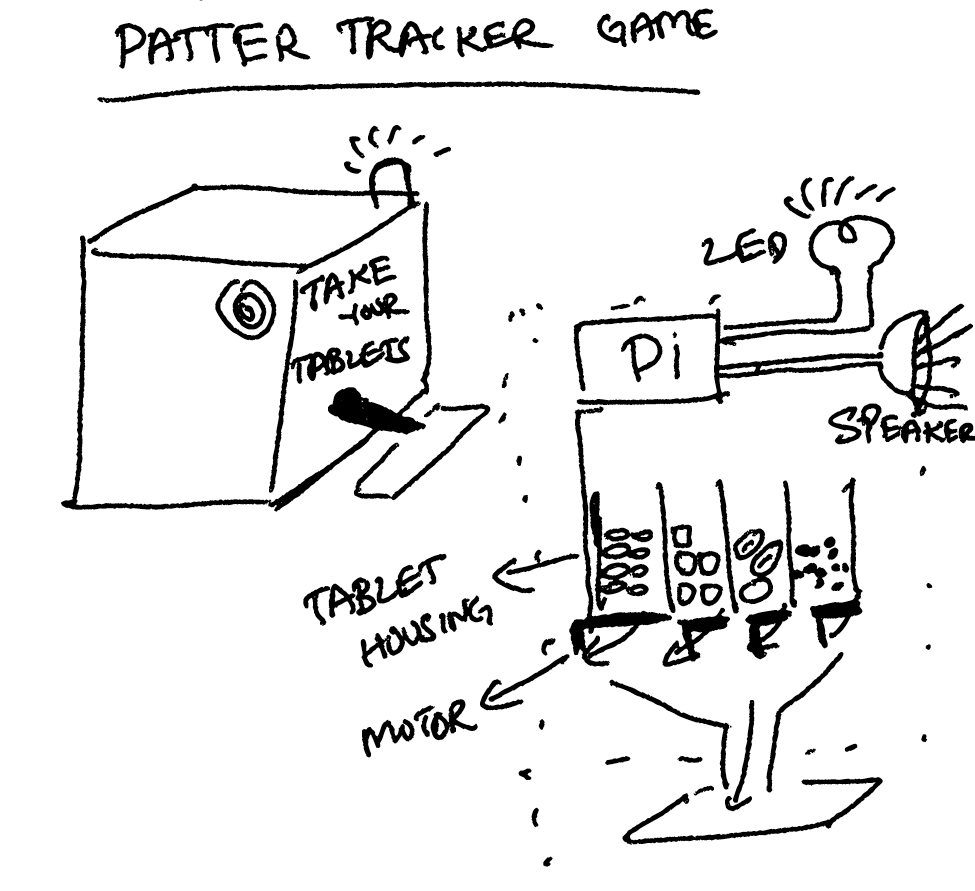 PATTER TRACKER GAME
TAKE
YOUR
TABLETS
LED
Pi
SPEAKER
TABLET
HOUSING
MOTOR